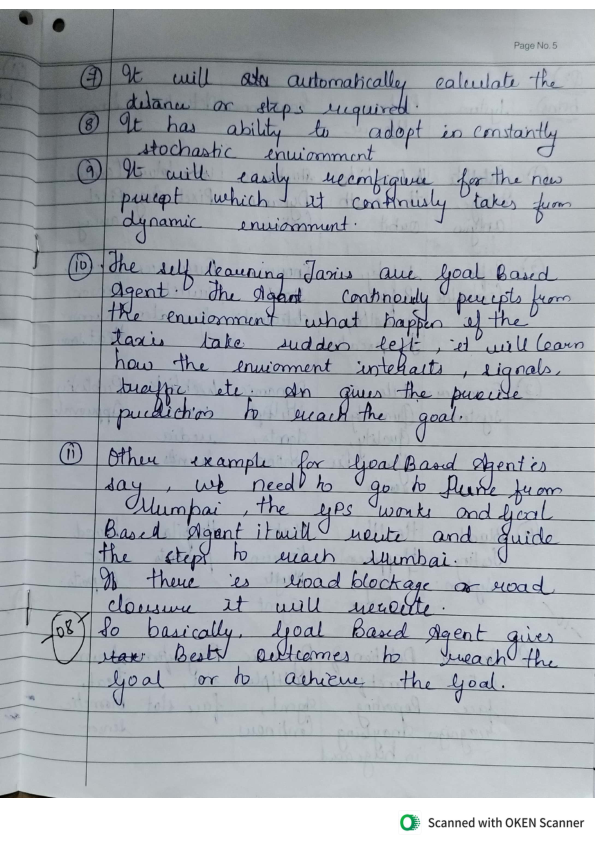 Page No. 5
⑦ It will automatically calculate the
distance or steps required.
⑧ It has ability to adopt in constantly
stochastic enviornment
⑨ It will easily reconfigure for the new
percept which it continusly takes from
dynamic enviornment.
⑩ The self learning Taxis are Goal Based
Agent. The Agent continously percepts from
the enviornment what happen if the
taxis take sudden left, it will learn
how the enviorment interaits, signals,
traffic etc. An gives the precise
prediction to reach the goal.
⑪ Other example for Goal Based Agent is
say, we need to go to Pune from
Mumbai, the GPS works and Goal
Based Agent it will route and guide
the steps to reach Mumbai.
If there is road blockage or road
closure it will reroute.
08 So basically, Goal Based Agent gives
Best outcomes to reach the
Goal or to achieve the Goal.
Scanned with OKEN Scanner